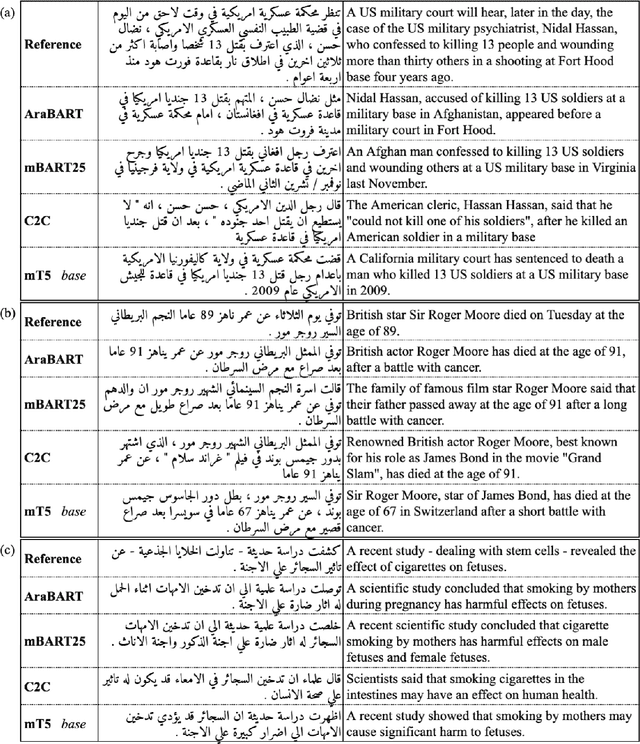 (a)
Reference
تنظر محكمة عسكرية امريكية في وقت لاحق من اليوم
في قضية الطبيب النفسي العسكري الامريكي ، نضال
حسن ، الذي اعترف بقتل 13 شخصا واصابة اكثر من
ثلاثين اخرين في اطلاق نار بقاعدة فورت هود منذ
اربعة اعوام .
A US military court will hear, later in the day, the
case of the US military psychiatrist, Nidal Hassan,
who confessed to killing 13 people and wounding
more than thirty others in a shooting at Fort Hood
base four years ago.
AraBART
مثل نضال حسن ، المتهم بقتل 13 جنديا امريكيا في
قاعدة عسكرية في افغانستان ، امام محكمة عسكرية في
مدينة فروت هود .
Nidal Hassan, accused of killing 13 US soldiers at a
military base in Afghanistan, appeared before a
military court in Fort Hood.
mBART25
اعترف رجل افغاني بقتل 13 جنديا امريكيا وجرح
اخرين في قاعدة عسكرية امريكية في ولاية فرجينيا في
نوفمبر / تشرين الثاني الماضي .
An Afghan man confessed to killing 13 US soldiers
and wounding others at a US military base in Virginia
last November.
C2C
قال رجل الدين الامريكي ، حسن حسن ، انه " لا
يستطيع ان يقتل احد جنوده " ، بعد ان قتل جنديا
امريكيا في قاعدة عسكرية
The American cleric, Hassan Hassan, said that he
"could not kill one of his soldiers", after he killed an
American soldier in a military base
mT5 base
قضت محكمة عسكرية في ولاية كاليفورنيا الامريكية
باعدام رجل قتل 13 جنديا امريكيا في قاعدة للجيش
الامريكي عام 2009 .
A California military court has sentenced to death a
man who killed 13 US soldiers at a US military base
in 2009.
(b)
Reference
توفي يوم الثلاثاء عن عمر ناهز 89 عاما النجم البريطاني
السير روجر مور .
British star Sir Roger Moore died on Tuesday at the
age of 89.
AraBART
توفي الممثل البريطاني روجر مور عن عمر يناهز 91 عاما
بعد صراع مع مرض السرطان .
British actor Roger Moore has died at the age of 91,
after a battle with cancer.
mBART25
قالت اسرة النجم السينمائي الشهير روجر مور ان والدهم
توفي عن عمر يناهز 91 عاما بعد صراع طويل مع مرض
السرطان .
The family of famous film star Roger Moore said that
their father passed away at the age of 91 after a long
battle with cancer.
C2C
توفي الممثل البريطاني الشهير روجر مور ، الذي اشتهر
بدور جيمس بوند في فيلم " غراند سلام " ، عن عمر
يناهز 91 عاما
Renowned British actor Roger Moore, best known
for his role as James Bond in the movie "Grand
Slam", has died at the age of 91.
mT5 base
توفي السير روجر مور ، بطل دور الجاسوس جيمس
بوند ، عن عمر يناهز 67 عاما في سويسرا بعد صراع
قصير مع مرض السرطان .
Sir Roger Moore, star of James Bond, has died at the
age of 67 in Switzerland after a short battle with
cancer.
(c)
Reference
كشفت دراسة حديثة - تناولت الخلايا الجذعية - عن
تاثير السجائر علي الاجنة .
A recent study - dealing with stem cells - revealed the
effect of cigarettes on fetuses.
AraBART
توصلت دراسة علمية الي ان تدخين الامهات اثناء الحمل
له اثار ضارة علي الاجنة .
A scientific study concluded that smoking by mothers
during pregnancy has harmful effects on fetuses.
mBART25
خلصت دراسة علمية حديثة الي ان تدخين الامهات
السجائر له اثار ضارة علي اجنة الذكور واجنة الاناث .
A recent scientific study concluded that cigarette
smoking by mothers has harmful effects on male
fetuses and female fetuses.
C2C
قال علماء ان تدخين السجائر في الامعاء قد يكون له تاثير
علي صحة الانسان .
Scientists said that smoking cigarettes in the
intestines may have an effect on human health.
mT5 base
اظهرت دراسة حديثة ان السجائر قد يؤدي تدخين
الامهات الي اضرار كبيرة علي الاجنة .
A recent study showed that smoking by mothers may
cause significant harm to fetuses.